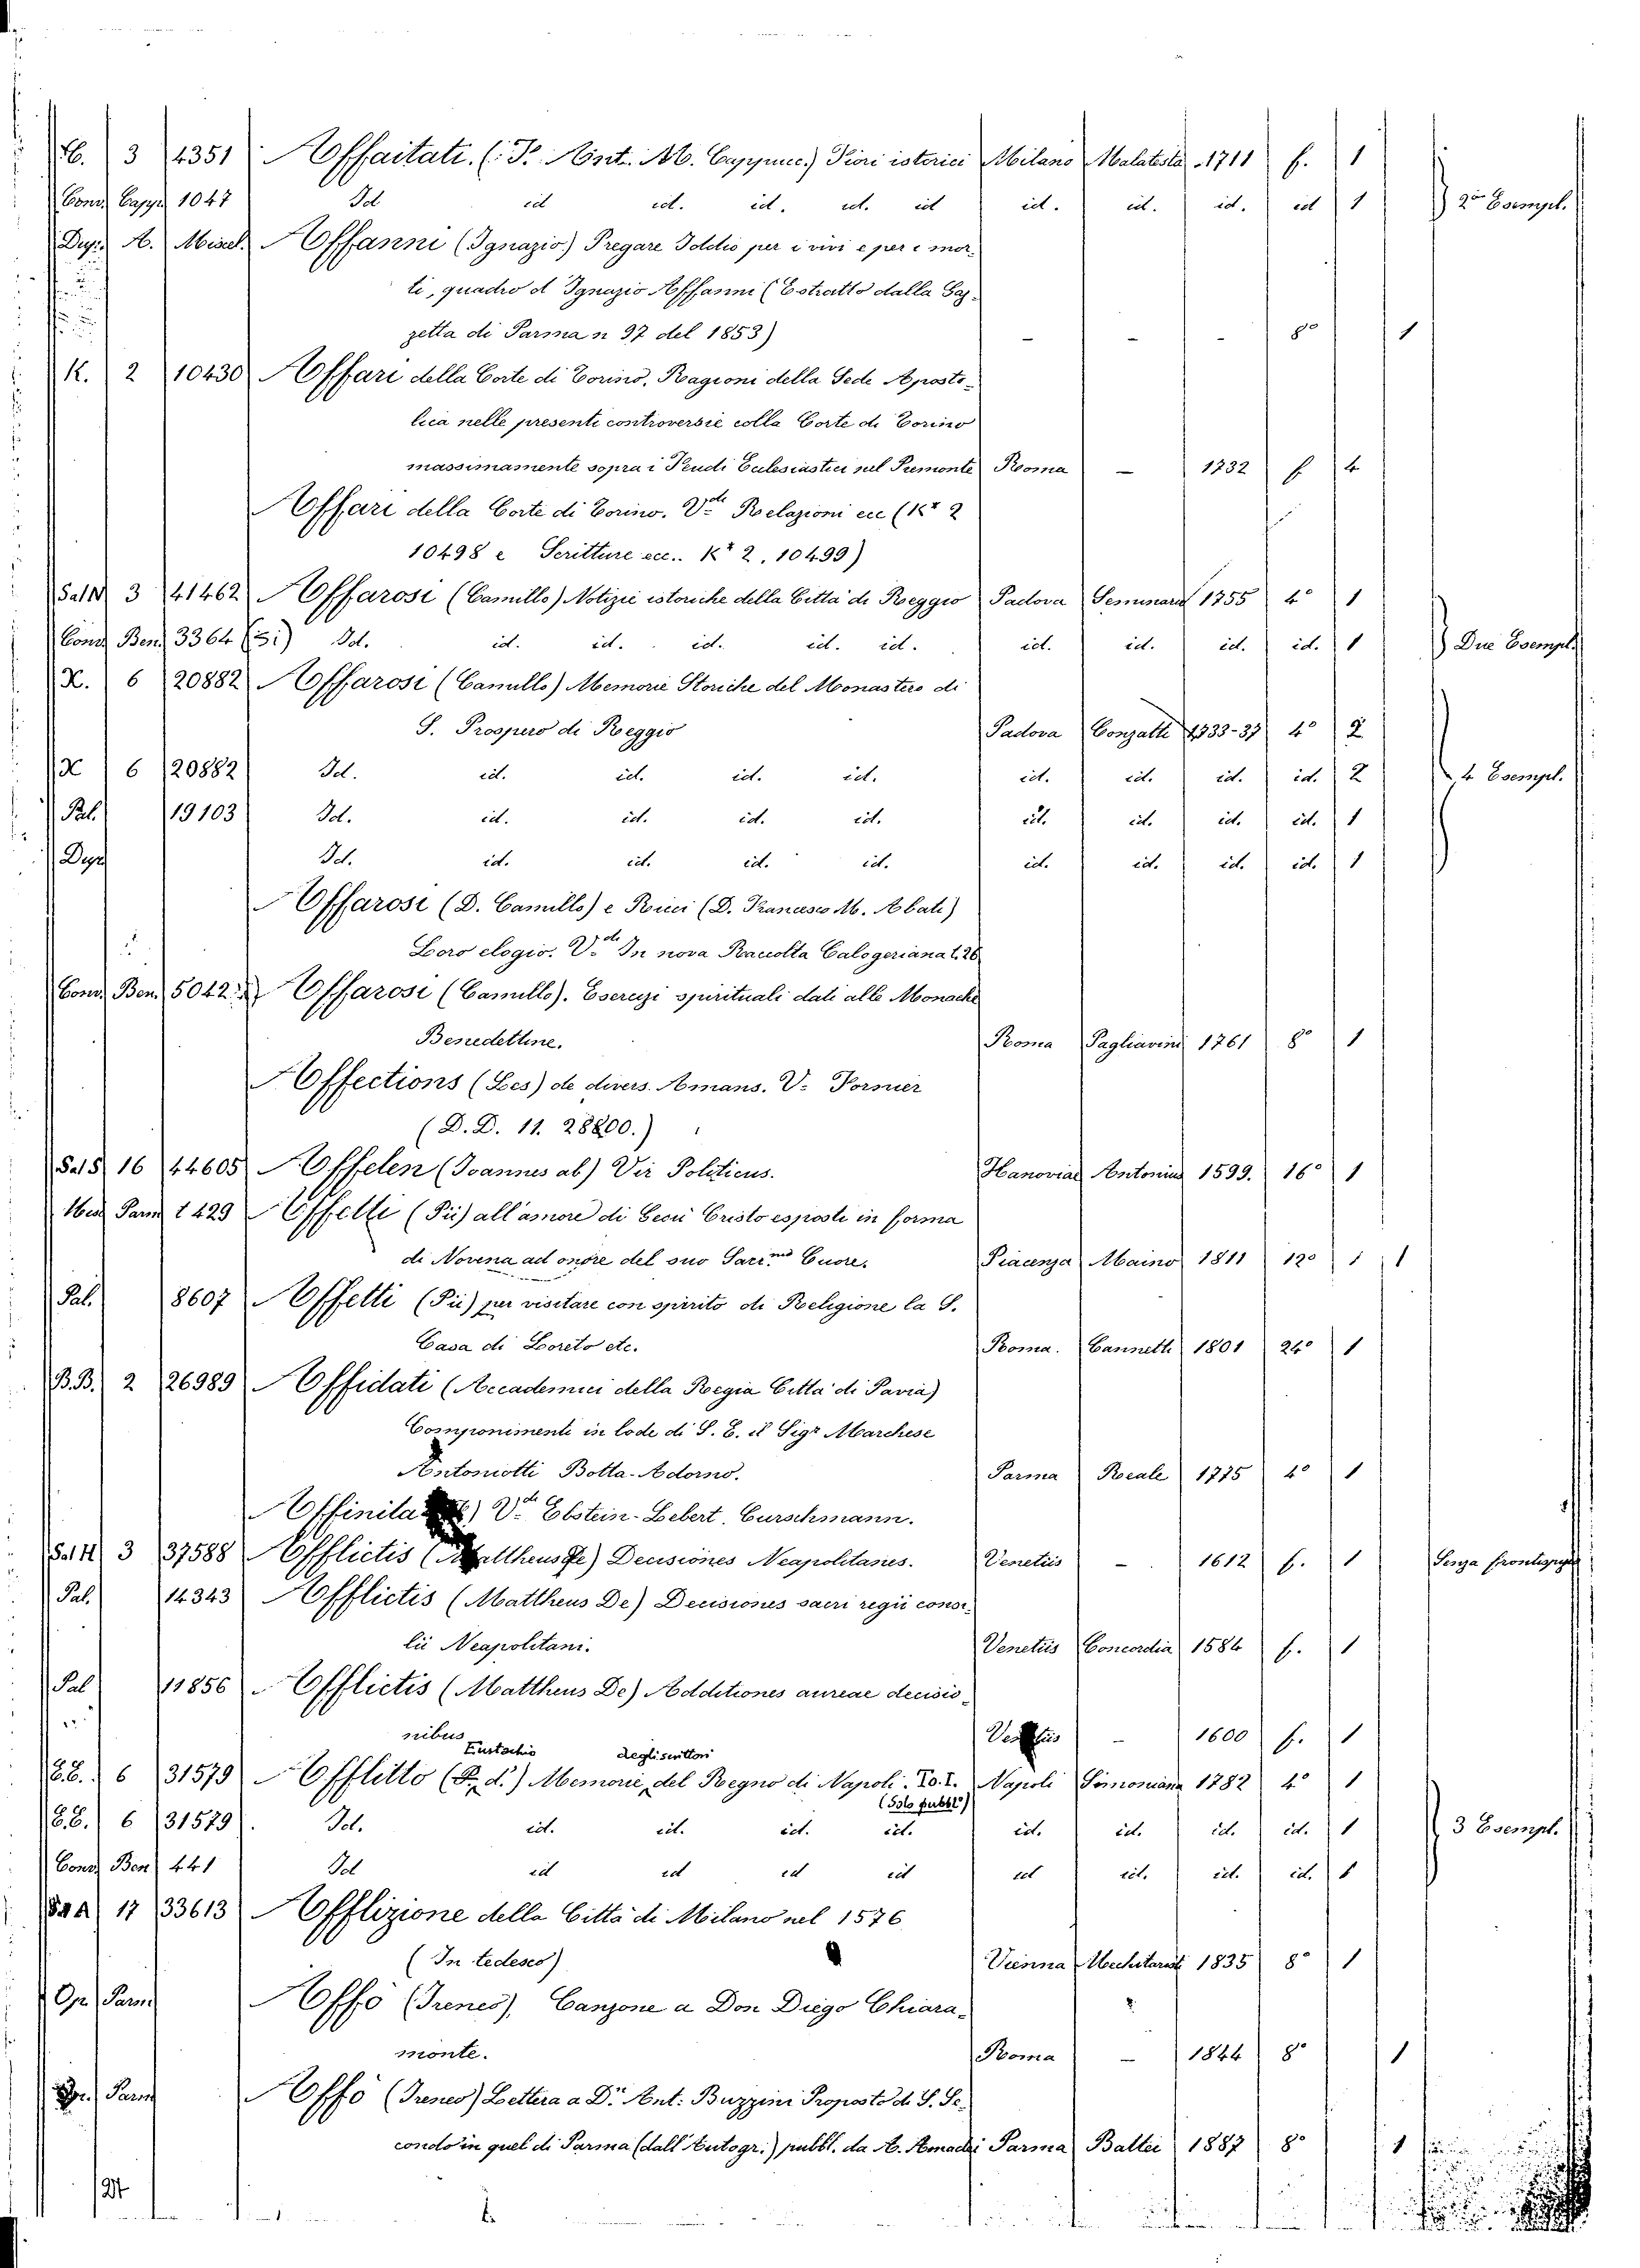 3 4351 Affaitati. (: P. Ant. M. Cappucc.) Fiori istorici Milano Malatesta 1711 f. 1
Conv. Capp. 1047 Id id id. id. id. id id. id. id. id 1 2° Esempl.
Dep. A. Miscel. Affanni (Ignazio) Pregare Iddio per i vivi e per i mor-
ti, quadro d Ignazio Affanni (Estratto dalla Gaz-
zetta di Parma n 97 del 1853) - - - 8° 1
K. 2 10430 Affari della Corte di Torino, Ragioni della Sede Aposto-
lica nelle presenti controversie colla Corte di Torino
massimamente sopra i Feudi Eclesiastici nel Piemonte Roma - 1732 f 4
Affari della Corte di Torino. V.de Relazioni ecc (K+ 2
10498 e Scritture ecc.. K+ 2. 10499)
Sal 3 41462 Affarosi (Camillo) Notizie istoriche della Città di Reggio Padova Seminario 1755 4° 1
Conv Ben. 3364 Id. id. id. id. id. id. id. id. id. id. 1 Due Esempl.
X. 6 20882 Affarosi (Camillo) Memorie Storiche del Monastero di
S. Prospero di Reggio Padova Conzatti 1733-37 4° 2
X 6 20882 Id. id. id. id. id. id. id. id. id. 2 4 Esempl.
Pal. 19103 Id. id. id. id. id. id. id. id. id. 1
Dep Id. id. id. id. id. id. id. id. id. 1
Affarosi (D. Camillo) e Ricci (D. Francesco M. Abati)
Loro elogio. V.de In nova Raccolta Calogeriana t. 26
Conv. Ben. 5042 Affarosi (Camillo). Esercizi spirituali dati alle Monache
Benedettine. Roma Pagliarini 1761 8° 1
Affections (Les) de divers. Amans. V. Fornier
(D.D. 11. 28200.)
Sal S 16 44605 Affelen (Joannes ab) Vir Politicus. Hanoviae Antonius 1599. 16° 1
Misc Parm 1429 Affetti (Pii) all'amore di Gesù Cristo esposti in forma
di Novena ad onore del suo Sac.mo Cuore. Piacenza Maino 1811 12° 1 1
Pal. 8607 Affetti (Pii) per visitare con spirito di Religione la S.
Casa di Loreto etc. Roma. Cannetti 1801 24° 1
B.B. 2 26989 Affidati (Accademici della Regia Città di Pavia)
Componimenti in lode di S. E. il Sigr Marchese
Antoniotti Botta-Adorno. Parma Reale 1775 4° 1
Affinita V.de Ebstein-Lebert. Curschmann.
Sal H 3 37588 Afflictis (Mattheus de) Decisiones Neapolitanes. Venetiis - 1612 f. 1 Senza frontespizio
Pal. 14343 Afflictis (Mattheus De) Decisiones sacri regii consi-
lii Neapolitani. Venetiis Concordia 1584 f. 1
Pal 11856 Afflictis (Mattheus De) Additiones aureae decisio-
nibus Venetiis - 1600 f. 1
Eustachio degli scrittori
E.E. 6 31579 Afflitto (P. d.') Memorie, del Regno di Napoli. To. I. Napoli Simoniana 1782 4° 1
(Solo pubbl°)
E.E. 6 31579 Id. id. id. id. id. id. id. id. id. 1 3 Esempl.
Conv Ben 441 Id id id id id id id. id. id. 1
17 33613 Afflizione della Città di Milano nel 1576
(In tedesco) Vienna Mechitarist 1835 8° 1
Op. Parm Affò (Ireneo), Canzone a Don Diego Chiara-
monte. Roma - 1844 8° 1
Op. Parm Affò (Ireneo) Lettera a D. Ant: Buzzini Proposto di S. Se-
condo in quel di Parma (dall'Autogr.) pubbl. da A. Amadei Parma Battei 1887 8° 1